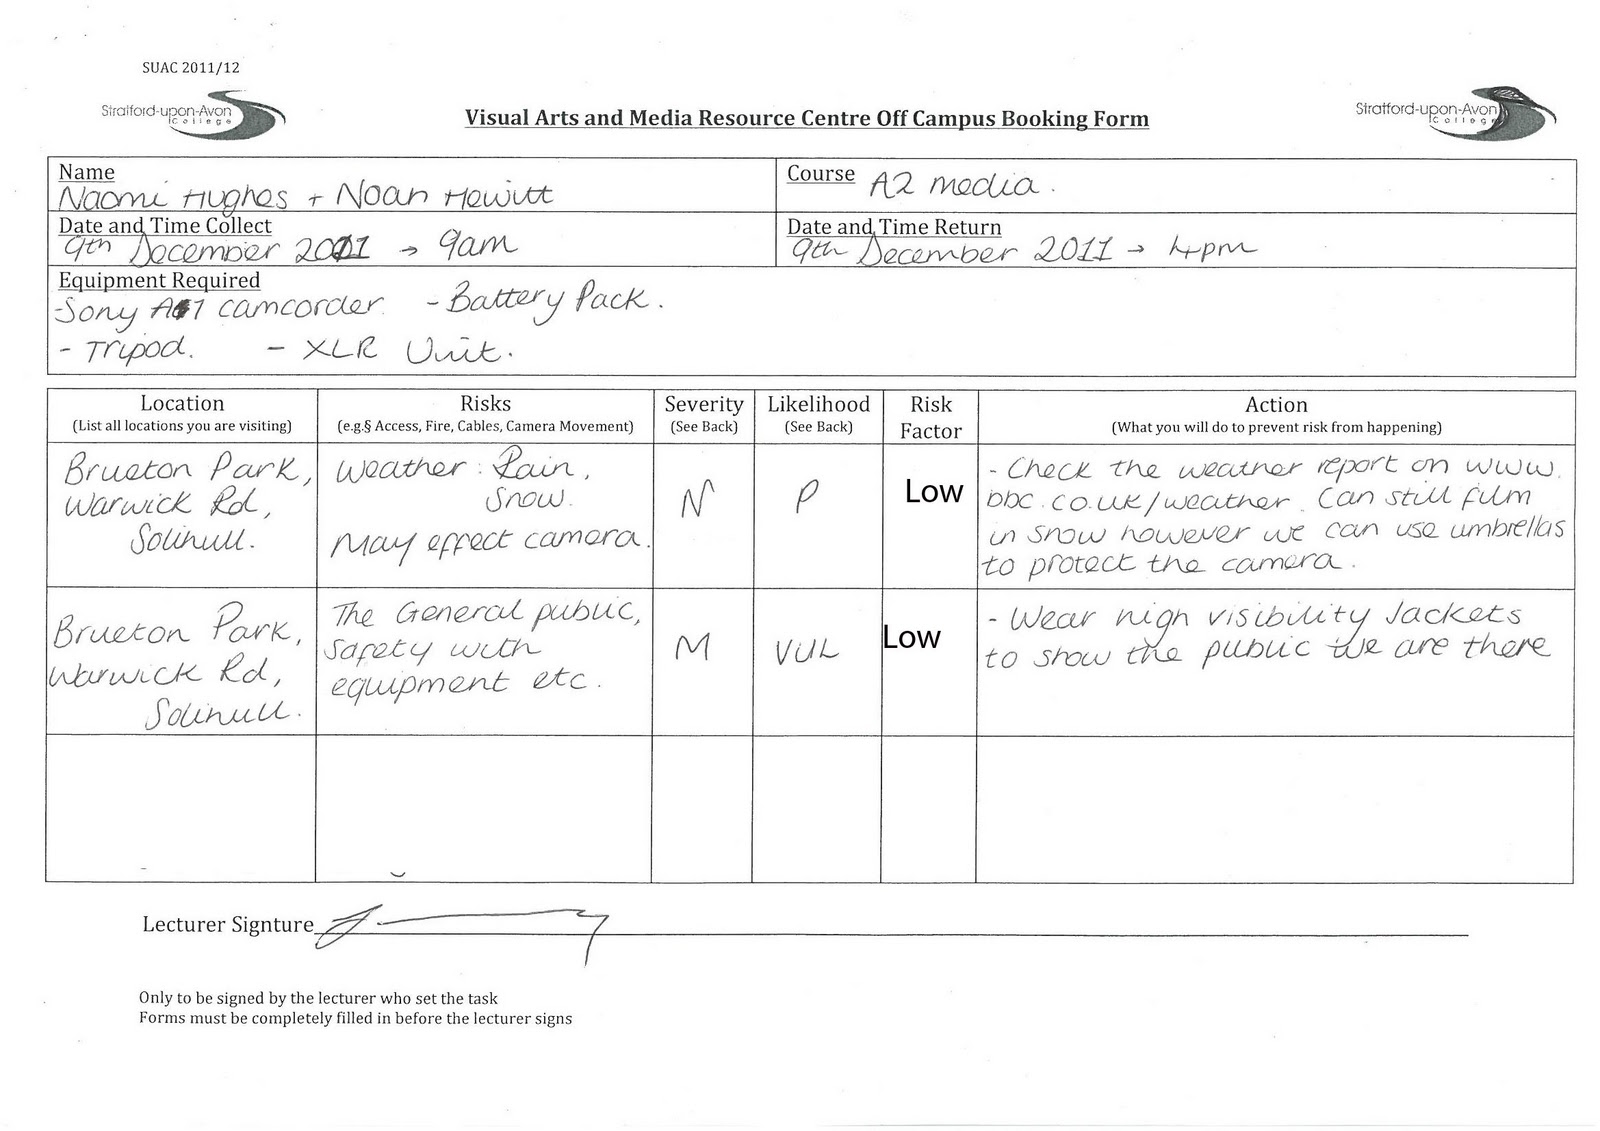 SUAC 2011/12
Stratford-upon-Avon
College
Visual Arts and Media Resource Centre Off Campus Booking Form
Stratford-upon-Avon
College
Name
Naomi Hughes + Noah Hewitt
Course A2 media.
Date and Time Collect
9th December 2011 → 9am
Date and Time Return
9th December 2011 → 4pm
Equipment Required
-Sony A1 camcorder. - Battery Pack.
- Tripod. - XLR Unit.
Location
(List all locations you are visiting)
Risks
(e.g.§ Access, Fire, Cables, Camera Movement)
Severity
(See Back)
Likelihood
(See Back)
Risk
Factor
Action
(What you will do to prevent risk from happening)
Brueton Park,
Warwick Rd,
Solihull.
Weather: Rain,
Snow.
May effect camera.
N
P
Low
- Check the weather report on www.
bbc.co.uk/weather. Can still film
in snow however we can use umbrellas
to protect the camera.
Brueton Park,
Warwick Rd,
Solihull.
The General public,
safety with
equipment etc.
M
VUL
Low
- Wear high visibility Jackets
to show the public we are there
Lecturer Signture
Only to be signed by the lecturer who set the task
Forms must be completely filled in before the lecturer signs